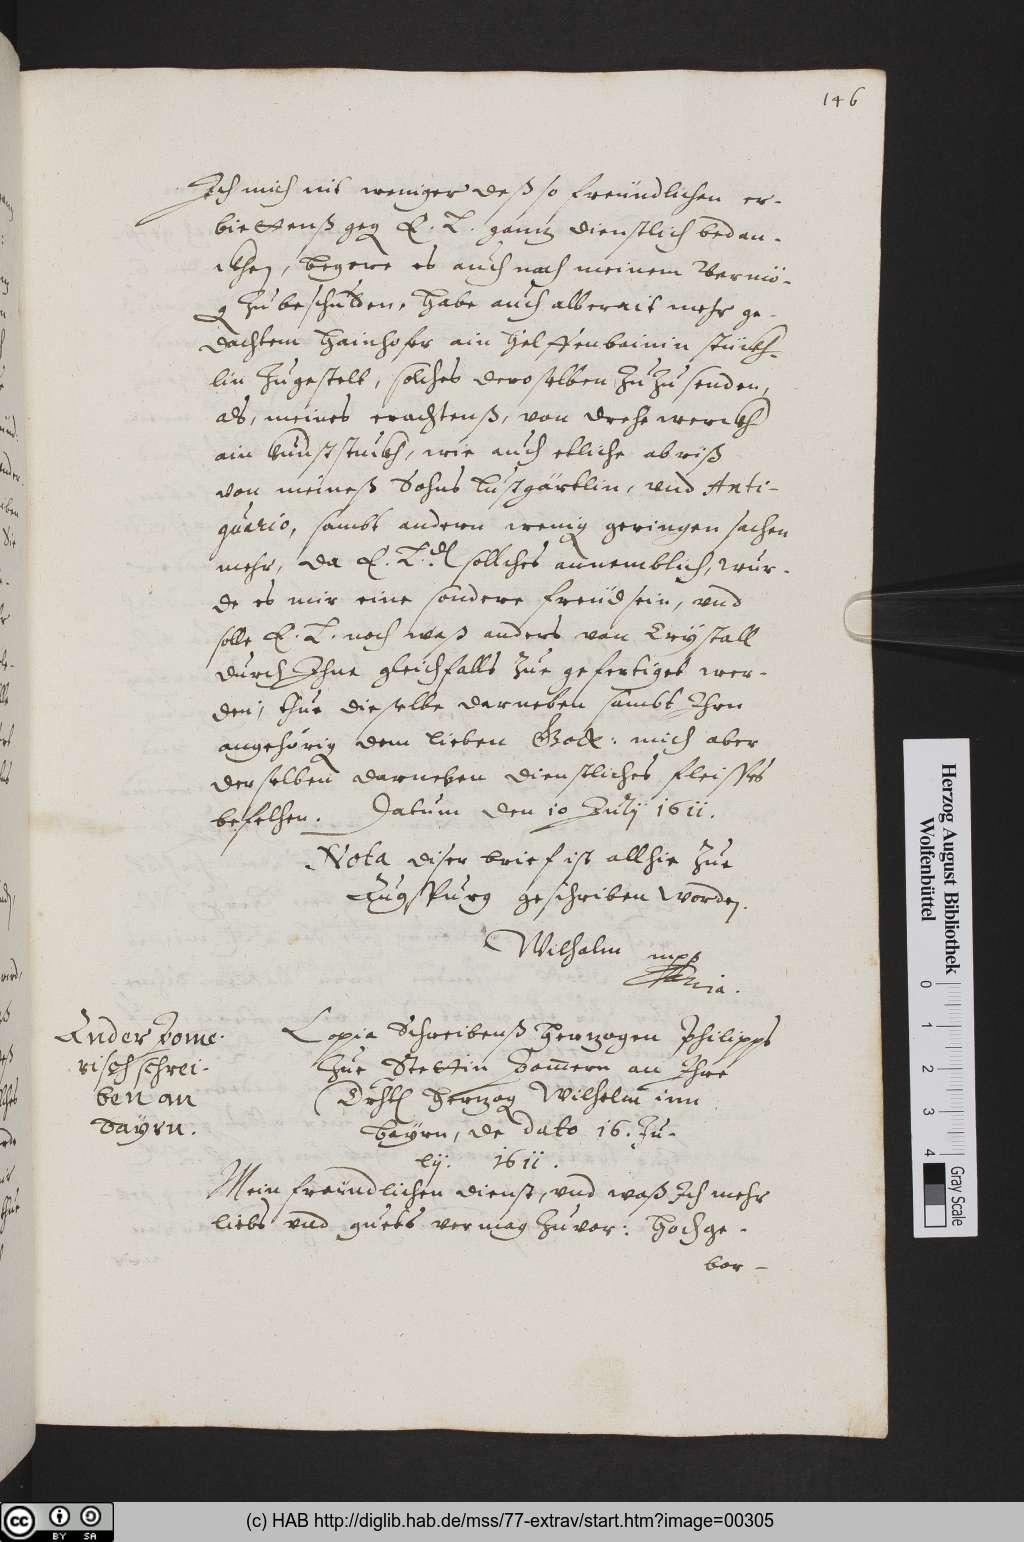 146
Ich mich nit weniger deß so freündlichen er-
biettenß geg E. L. gantz dienstlich bedan-
ckhen, begere es auch nach meinem vermö-
g zu beschulden, habe auch allerait mehr ge-
dachtem Hainhofer ain helffenbainin stückh-
lin zugestelt, solches deroselben zuzusenden,
als, meines erachtenß, von drehewerckh
ain kunststuckh, wie auch etliche abriß
von meineß Sohns lustgärtlin, vnd Anti-
quario, sambt andern wenig geringen sachen
mehr, da E. L. solliches annemblich, wur-
de es mir eine sondere freüd sein, vnd
solle E. L. noch waß anders von Crÿstall
durch Ihne gleichfalls zue gefertiget wer-
den, thue dieselbe darneben sambt Ihrn
angehörig dem lieben Gott: mich aber
derselben darneben dienstliches fleisses
befelhen. Datum den 10 Julij 1611.
Nota diser brief ist allhie zue
Augspurg geschriben worden.
Wilhalm mpp
ria.
Ander Pome-
risch schrei-
ben an
Bayrn.
Copia Schreibenß Hertzogen Philipps
zue Stettin Pom̄ern an Ihre
Drhtl Hertzog Wilhelm inn
Bayrn, de dato 16. Ju-
lij. 1611.
Mein freündlichen dienst, vnd waß Ich mehr
liebs vnd guets vermag zuvor: Hochge-
bor-
Herzog August Bibliothek
Wolfenbüttel
0 1 2 3 4
Gray Scale
cc BY SA
(c) HAB http://diglib.hab.de/mss/77-extrav/start.htm?image=00305